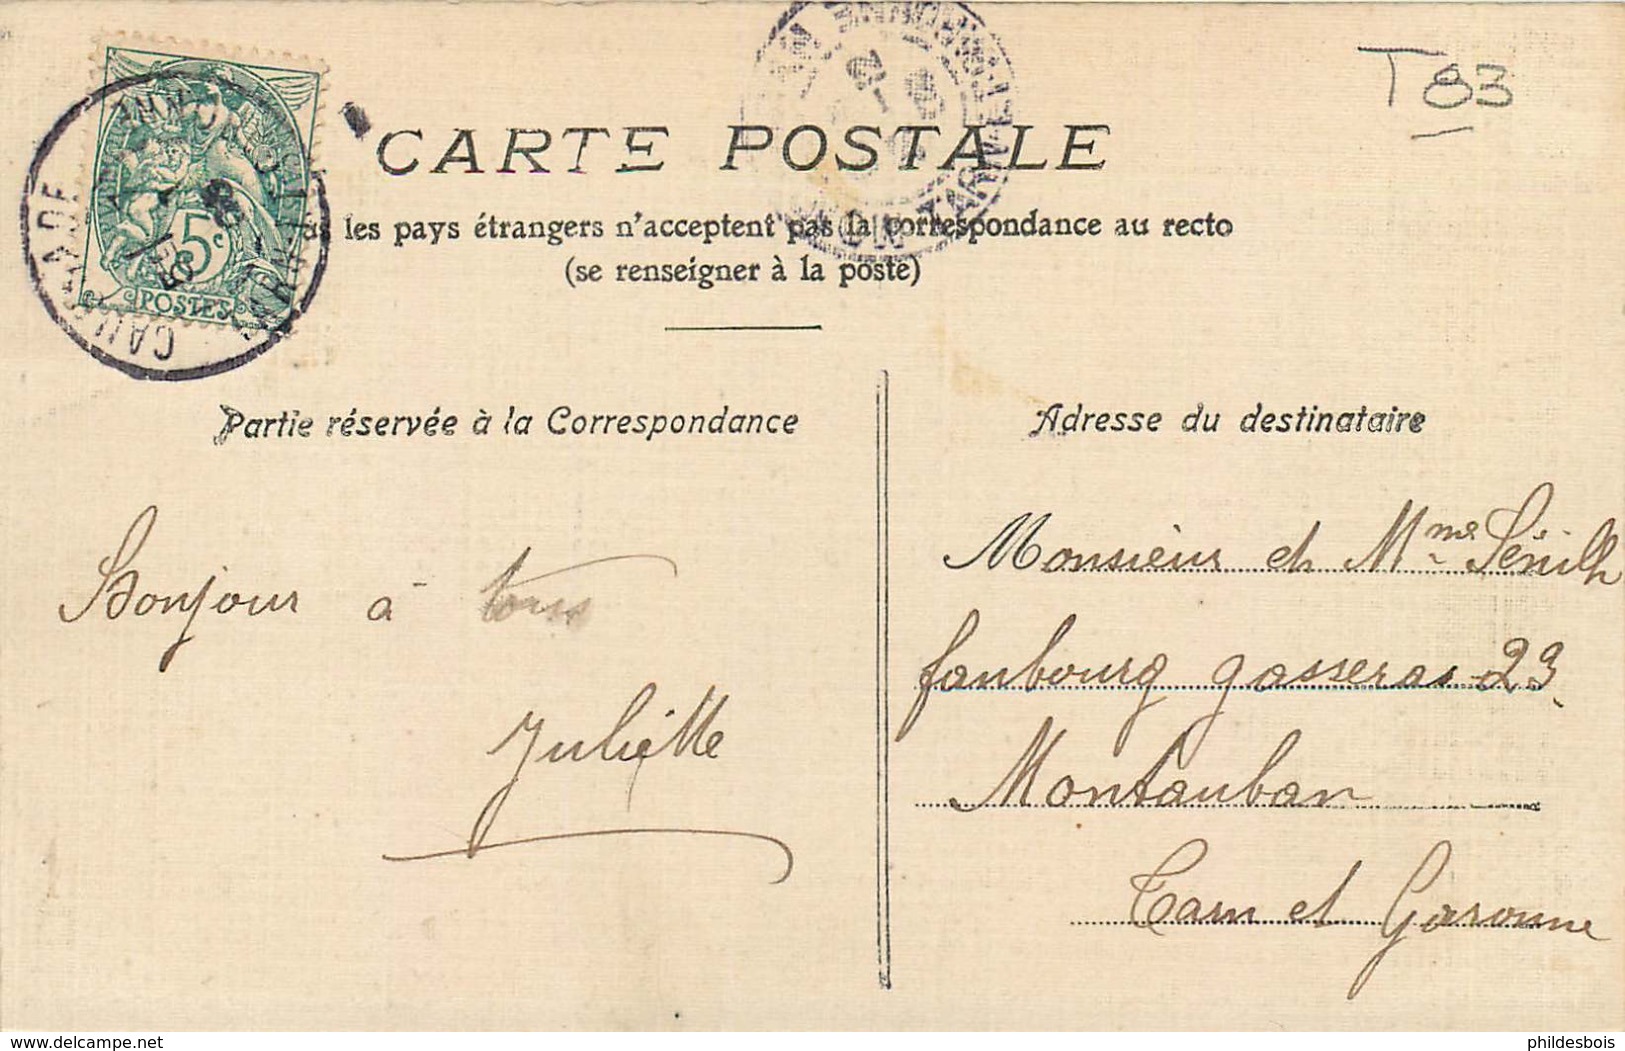 T 83
CARTE POSTALE
les pays étrangers n'acceptent pas la correspondance au recto
(se renseigner à la poste)
5c
POSTES
CAUSSADE
TARN-ET-GARONNE
TARN-ET-GARONNE
Partie réservée à la Correspondance
Bonjour à tous
Juliette
Adresse du destinataire
Monsieur et Mme Sénilh
faubourg gasseras 23
Montauban
Tarn et Garonne
delcampe.net
phildesbois